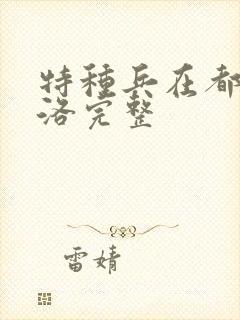 特種兵在都
洛完整
雷婧